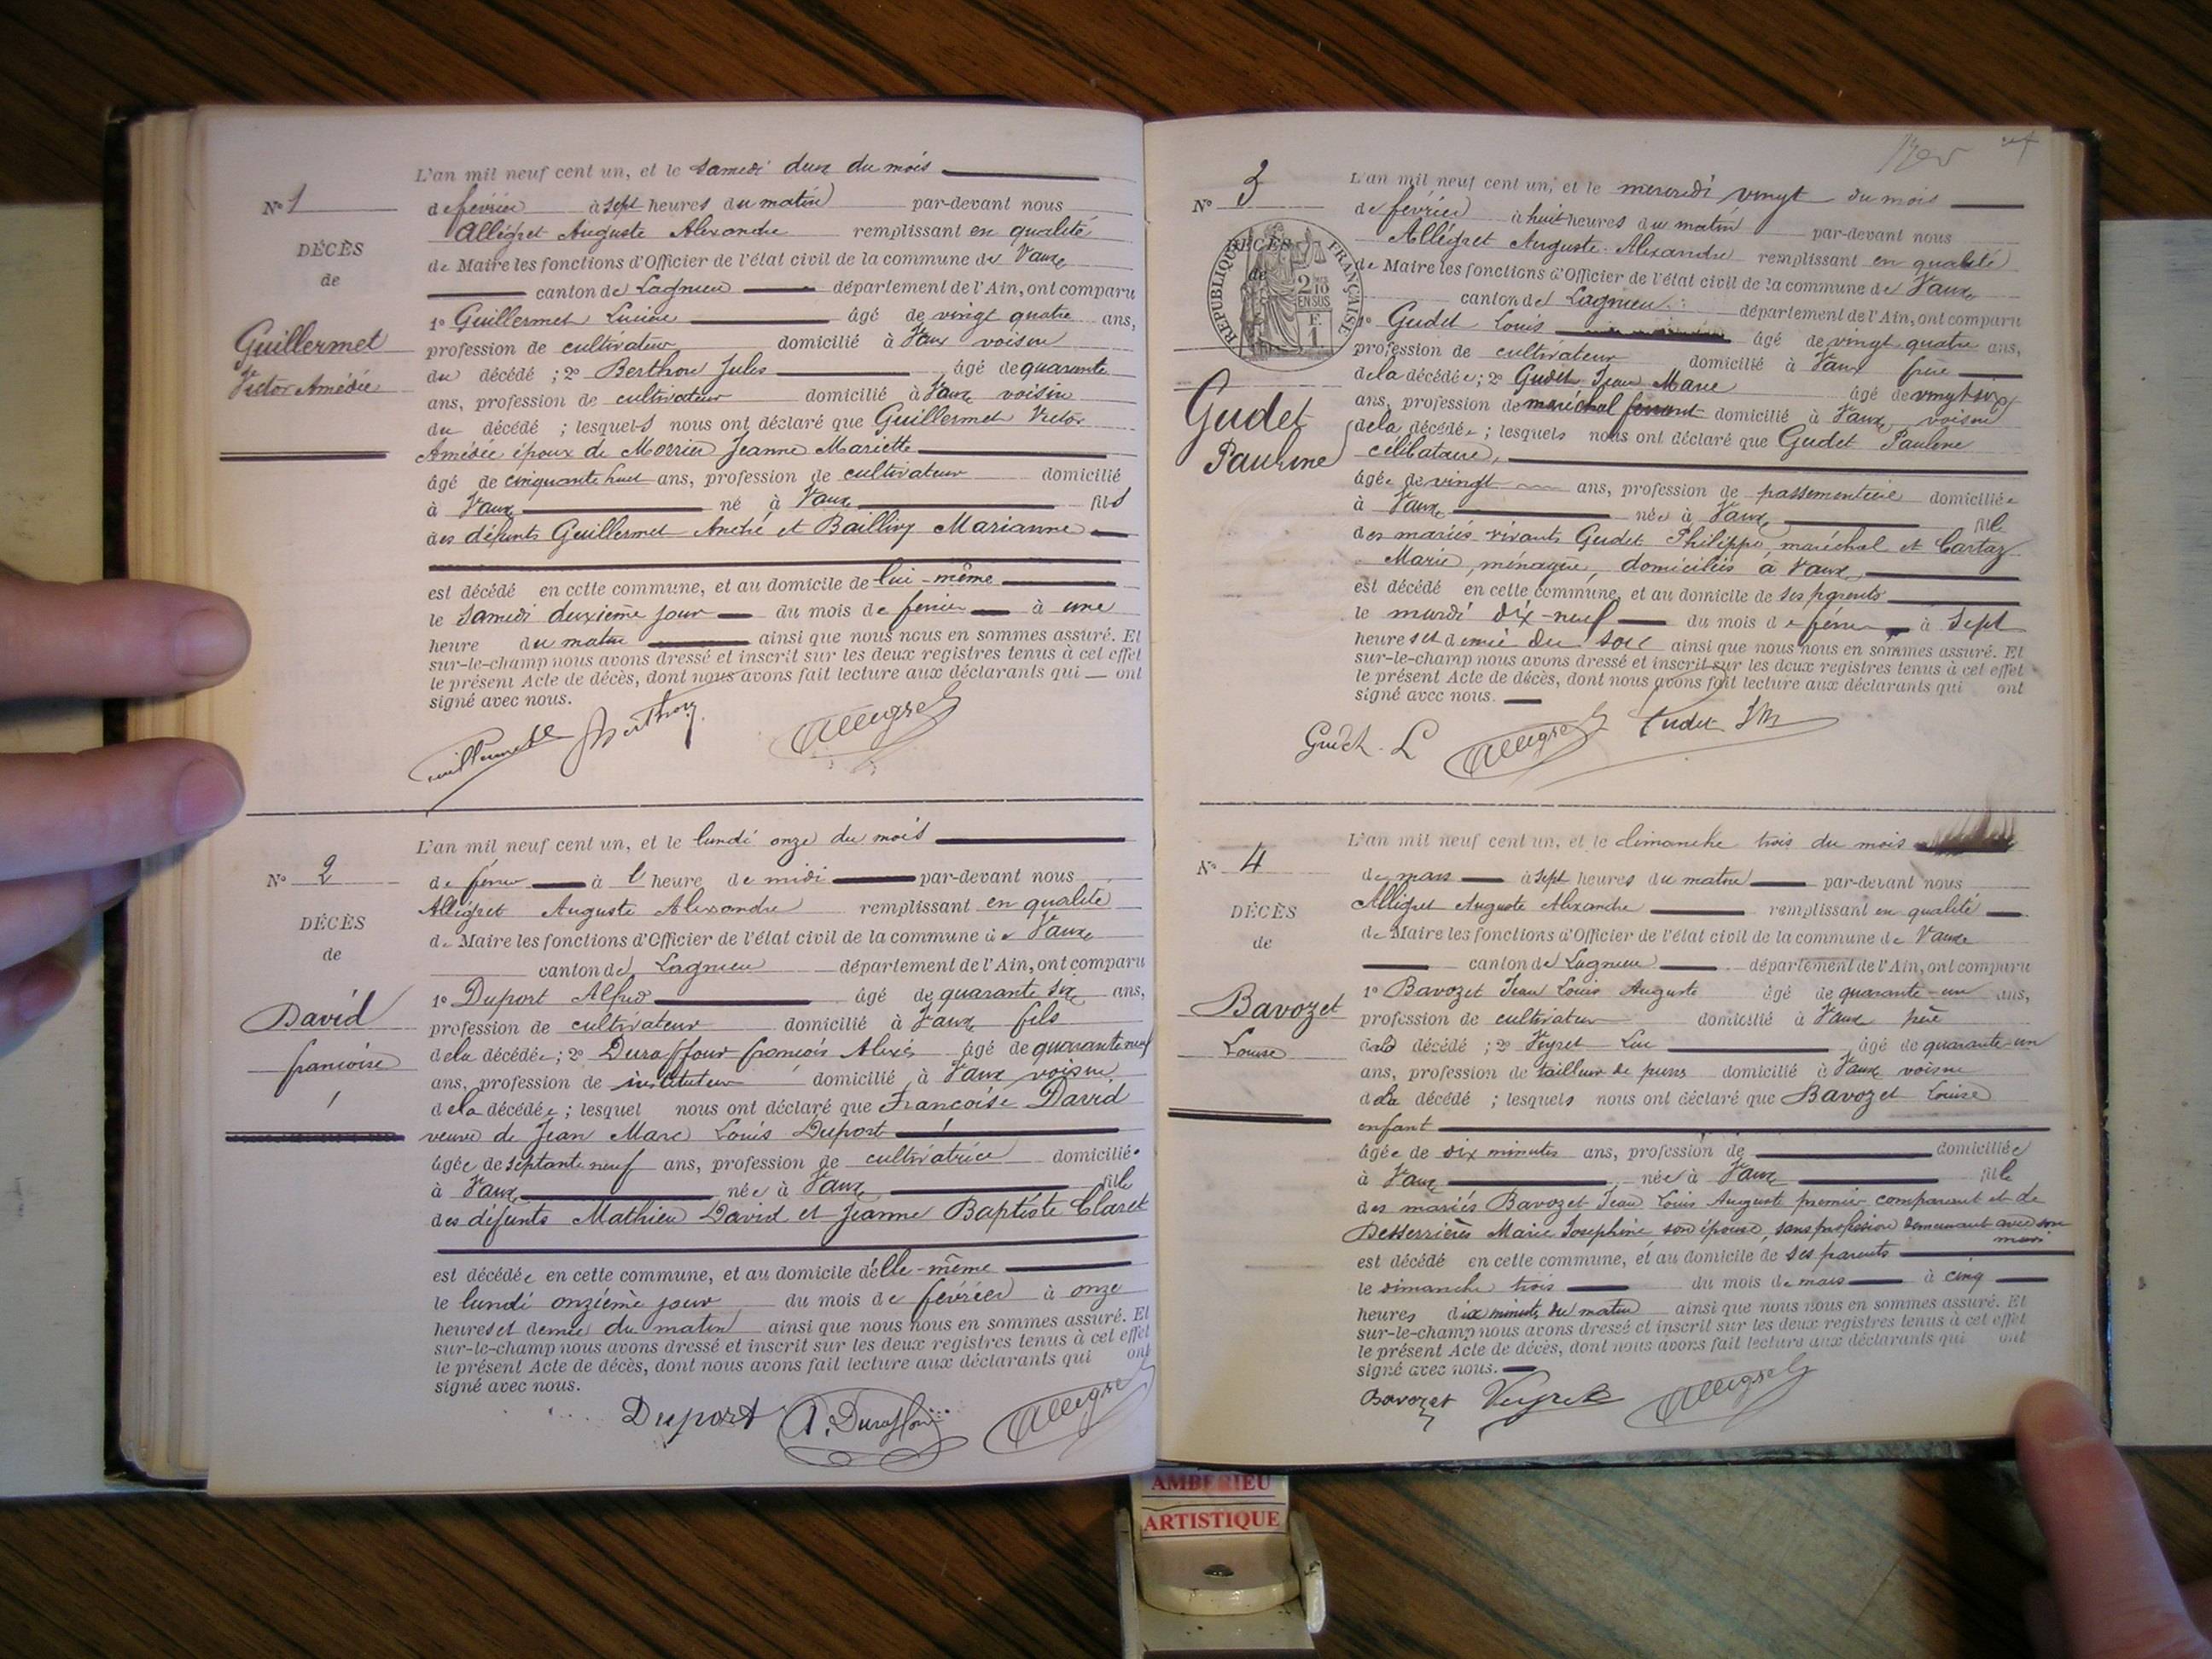 L'an mil neuf cent un, et le samedi deux du mois
N° 1
de février à sept heures du matin par-devant nous
Allégret Auguste Alexandre remplissant en qualité
DÉCÈS
de Maire les fonctions d'Officier de l'état civil de la commune de Vaux
de
canton de Lagnieu département de l'Ain, ont comparu
1° Guillermet Lucien âgé de vingt quatre ans,
Guillermet
profession de cultivateur domicilié à Vaux voisin
Victor Amédée
du décédé ; 2° Berthou Jules âgé de quarante
ans, profession de cultivateur domicilié à Vaux voisin
du décédé ; lesquels nous ont déclaré que Guillermet Victor
Amédée époux de Jeanne Mariette
âgé de cinquante huit ans, profession de cultivateur domicilié
à Vaux né à Vaux fils
des défunts Guillermet André et Marianne
est décédé en cette commune, et au domicile de lui-même
le samedi deuxième jour du mois de février à une
heure du matin ainsi que nous nous en sommes assuré. Et
sur-le-champ nous avons dressé et inscrit sur les deux registres tenus à cet effet
le présent Acte de décès, dont nous avons fait lecture aux déclarants qui ont
signé avec nous.
Allegret
L'an mil neuf cent un, et le lundi onze du mois
N° 2
de février à 1 heure de midi par-devant nous
Allégret Auguste Alexandre remplissant en qualité
DÉCÈS
de Maire les fonctions d'Officier de l'état civil de la commune de Vaux
de
canton de Lagnieu département de l'Ain, ont comparu
1° Duport Alfred âgé de quarante six ans,
David
profession de cultivateur domicilié à Vaux fils
françoise
de la décédée ; 2° Duraffour françois Alexis âgé de quarante neuf
ans, profession de instituteur domicilié à Vaux voisin
de la décédée ; lesquel nous ont déclaré que Françoise David
veuve de Jean Marc Louis Duport
âgée de septante neuf ans, profession de cultivatrice domiciliée
à Vaux née à Vaux fille
des défunts Mathieu David et Jeanne Baptiste Claret
est décédée en cette commune, et au domicile d'elle-même
le lundi onzième jour du mois de février à onze
heures et demie du matin ainsi que nous nous en sommes assuré. Et
sur-le-champ nous avons dressé et inscrit sur les deux registres tenus à cet effet
le présent Acte de décès, dont nous avons fait lecture aux déclarants qui ont
signé avec nous.
Duport A. Duraffour Allegret
L'an mil neuf cent un, et le mercredi vingt du mois
N° 3
de février à huit heures du matin par-devant nous
Allégret Auguste Alexandre remplissant en qualité
DÉCÈS
de
RÉPUBLIQUE FRANÇAISE
2/10 EN SUS
F. 1
de Maire les fonctions d'Officier de l'état civil de la commune de Vaux
canton de Lagnieu département de l'Ain, ont comparu
1° Gudet Louis âgé de vingt quatre ans,
profession de cultivateur domicilié à Vaux frère
de la décédée ; 2° Gudet Jean Marie âgé de vingt six
Gudet
ans, profession de maréchal ferrant domicilié à Vaux voisin
de la décédée ; lesquels nous ont déclaré que Gudet Pauline
Pauline
célibataire,
âgée de vingt ans, profession de passementière domiciliée
à Vaux née à Vaux fille
des mariés vivants Gudet Philippe, maréchal et Cartaz
Marie, ménagère, domiciliés à Vaux,
est décédé en cette commune, et au domicile de ses parents
le mardi dix-neuf du mois de février à sept
heures et demie du soir ainsi que nous nous en sommes assuré. Et
sur-le-champ nous avons dressé et inscrit sur les deux registres tenus à cet effet
le présent Acte de décès, dont nous avons fait lecture aux déclarants qui ont
signé avec nous.
Gudet L Allegret Gudet JM
L'an mil neuf cent un, et le dimanche trois du mois
N° 4
de mars à sept heures du matin par-devant nous
Allégret Auguste Alexandre remplissant en qualité
DÉCÈS
de Maire les fonctions d'Officier de l'état civil de la commune de Vaux
de
canton de Lagnieu département de l'Ain, ont comparu
1° Bavozet Jean Louis Auguste âgé de quarante-un ans,
Bavozet
profession de cultivateur domicilié à Vaux père
Louise
de la décédé ; 2° Veyret Luc âgé de quarante-un
ans, profession de tailleur de domicilié à Vaux voisin
de la décédé ; lesquels nous ont déclaré que Bavozet Louise
enfant
âgée de dix minutes ans, profession de domiciliée
à Vaux née à Vaux fille
des mariés Bavozet Jean Louis Auguste premier comparant et de
Desserrières Marie Josephine son épouse, sans profession demeurant avec son
mari
est décédé en cette commune, et au domicile de ses parents
le dimanche trois du mois de mars à cinq
heures dix minutes du matin ainsi que nous nous en sommes assuré. Et
sur-le-champ nous avons dressé et inscrit sur les deux registres tenus à cet effet
le présent Acte de décès, dont nous avons fait lecture aux déclarants qui ont
signé avec nous.
Bavozet Veyret Allegret
AMBERIEU
ARTISTIQUE